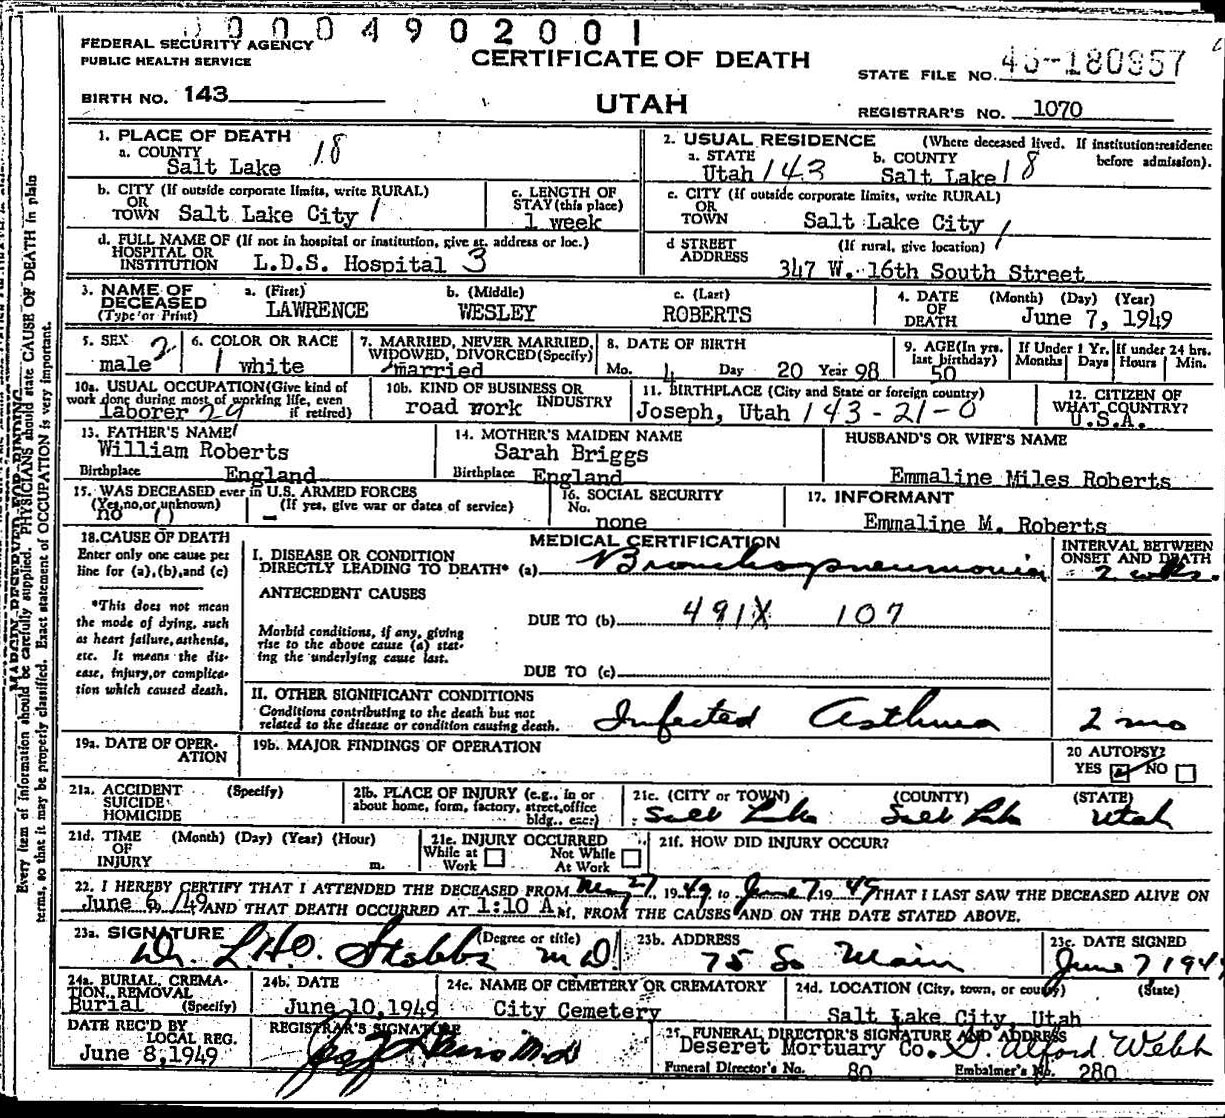 0004902001
FEDERAL SECURITY AGENCY
PUBLIC HEALTH SERVICE
CERTIFICATE OF DEATH
STATE FILE NO. 180957
BIRTH NO. 143
UTAH
REGISTRAR'S NO. 1070
1. PLACE OF DEATH
a. COUNTY
Salt Lake 18
2. USUAL RESIDENCE (Where deceased lived. If institution:residence before admission).
a. STATE b. COUNTY
Utah 143 Salt Lake 18
b. CITY (If outside corporate limits, write RURAL)
OR
TOWN Salt Lake City 1
c. LENGTH OF
STAY (this place)
1 week
c. CITY (If outside corporate limits, write RURAL)
OR
TOWN Salt Lake City 1
d. FULL NAME OF (If not in hospital or institution, give st. address or loc.)
HOSPITAL OR
INSTITUTION L.D.S. Hospital 3
d STREET (If rural, give location)
ADDRESS
347 W. 16th South Street
3. NAME OF a. (First) b. (Middle) c. (Last)
DECEASED LAWRENCE WESLEY ROBERTS
(Type or Print)
4. DATE (Month) (Day) (Year)
OF
DEATH June 7, 1949
5. SEX 2
male
6. COLOR OR RACE
1 white
7. MARRIED, NEVER MARRIED,
WIDOWED, DIVORCED (Specify)
married
8. DATE OF BIRTH
Mo. 4 Day 20 Year 98
9. AGE (In yrs.
last birthday)
50
If Under 1 Yr.
Months Days
If under 24 hrs.
Hours Min.
10a. USUAL OCCUPATION (Give kind of
work done during most of working life, even
if retired)
laborer 29
10b. KIND OF BUSINESS OR
INDUSTRY
road work
11. BIRTHPLACE (City and State or foreign country)
Joseph, Utah 143-21-0
12. CITIZEN OF
WHAT COUNTRY?
U.S.A.
13. FATHER'S NAME
William Roberts
Birthplace England
14. MOTHER'S MAIDEN NAME
Sarah Briggs
Birthplace England
HUSBAND'S OR WIFE'S NAME
Emmaline Miles Roberts
15. WAS DECEASED ever in U.S. ARMED FORCES
(Yes, no, or unknown) (If yes, give war or dates of service)
no
16. SOCIAL SECURITY
No.
none
17. INFORMANT
Emmaline M. Roberts
18. CAUSE OF DEATH
Enter only one cause per
line for (a), (b), and (c)
*This does not mean
the mode of dying, such
as heart failure, asthenia,
etc. It means the dis-
ease, injury, or complica-
tion which caused death.
MEDICAL CERTIFICATION
I. DISEASE OR CONDITION
DIRECTLY LEADING TO DEATH* (a) Bronchopneumonia
ANTECEDENT CAUSES
DUE TO (b) 491X 107
Morbid conditions, if any, giving
rise to the above cause (a) stat-
ing the underlying cause last.
DUE TO (c)
II. OTHER SIGNIFICANT CONDITIONS
Conditions contributing to the death but not
related to the disease or condition causing death.
Infected Asthma
INTERVAL BETWEEN
ONSET AND DEATH
2 wks.
2 mo
19a. DATE OF OPER-
ATION
19b. MAJOR FINDINGS OF OPERATION
20 AUTOPSY?
YES NO
21a. ACCIDENT (Specify)
SUICIDE
HOMICIDE
21b. PLACE OF INJURY (e.g., in or
about home, form, factory, street, office
bldg., etc.)
21c. (CITY or TOWN) (COUNTY) (STATE)
Salt Lake Salt Lake Utah
21d. TIME (Month) (Day) (Year) (Hour)
OF
INJURY m.
21e. INJURY OCCURRED
While at Work Not While At Work
21f. HOW DID INJURY OCCUR?
22. I HEREBY CERTIFY THAT I ATTENDED THE DECEASED FROM May 27, 1949 to June 7 1949 THAT I LAST SAW THE DECEASED ALIVE ON
June 6, /49 AND THAT DEATH OCCURRED AT 1:10 A M. FROM THE CAUSES AND ON THE DATE STATED ABOVE.
23a. SIGNATURE (Degree or title)
Dr. L.H.O. Stobbs M D.
23b. ADDRESS
75 So Main
23c. DATE SIGNED
June 7 194
24a. BURIAL, CREMA-
TION, REMOVAL
Burial (Specify)
24b. DATE
June 10, 1949
24c. NAME OF CEMETERY OR CREMATORY
City Cemetery
24d. LOCATION (City, town, or county) (State)
Salt Lake City, Utah
DATE REC'D BY
LOCAL REG.
June 8, 1949
REGISTRAR'S SIGNATURE
M.D
25. FUNERAL DIRECTOR'S SIGNATURE AND ADDRESS
Deseret Mortuary Co. S. Alford Webb
Funeral Director's No. 80 Embalmer's No. 280
Every item of information should be carefully supplied. PHYSICIANS should state CAUSE OF DEATH in plain
terms, so that it may be properly classified. Exact statement of OCCUPATION is very important.